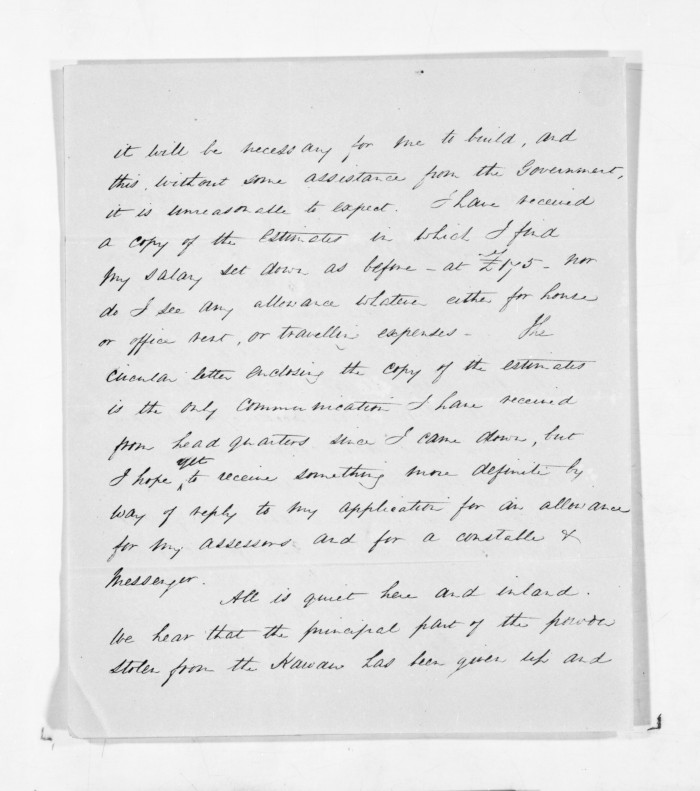 it will be necessary for me to build, and
this, without some assistance from the Government,
it is unreasonable to expect. I have received
a copy of the estimates in which I find
my salary set down as before - at £175 - nor
do I see any allowance whatever either for house
or office rent, or travellin expenses - The
circular letter enclosing the copy of the estimates
is the only communication I have received
from head quarters since I came down, but
I hope yet to receive something more definite by
way of reply to my application for an allowance
for my assessors and for a constable &
Messenger.
All is quiet here and inland.
We hear that the principal part of the powder
stolen from the Kawau has been given up and